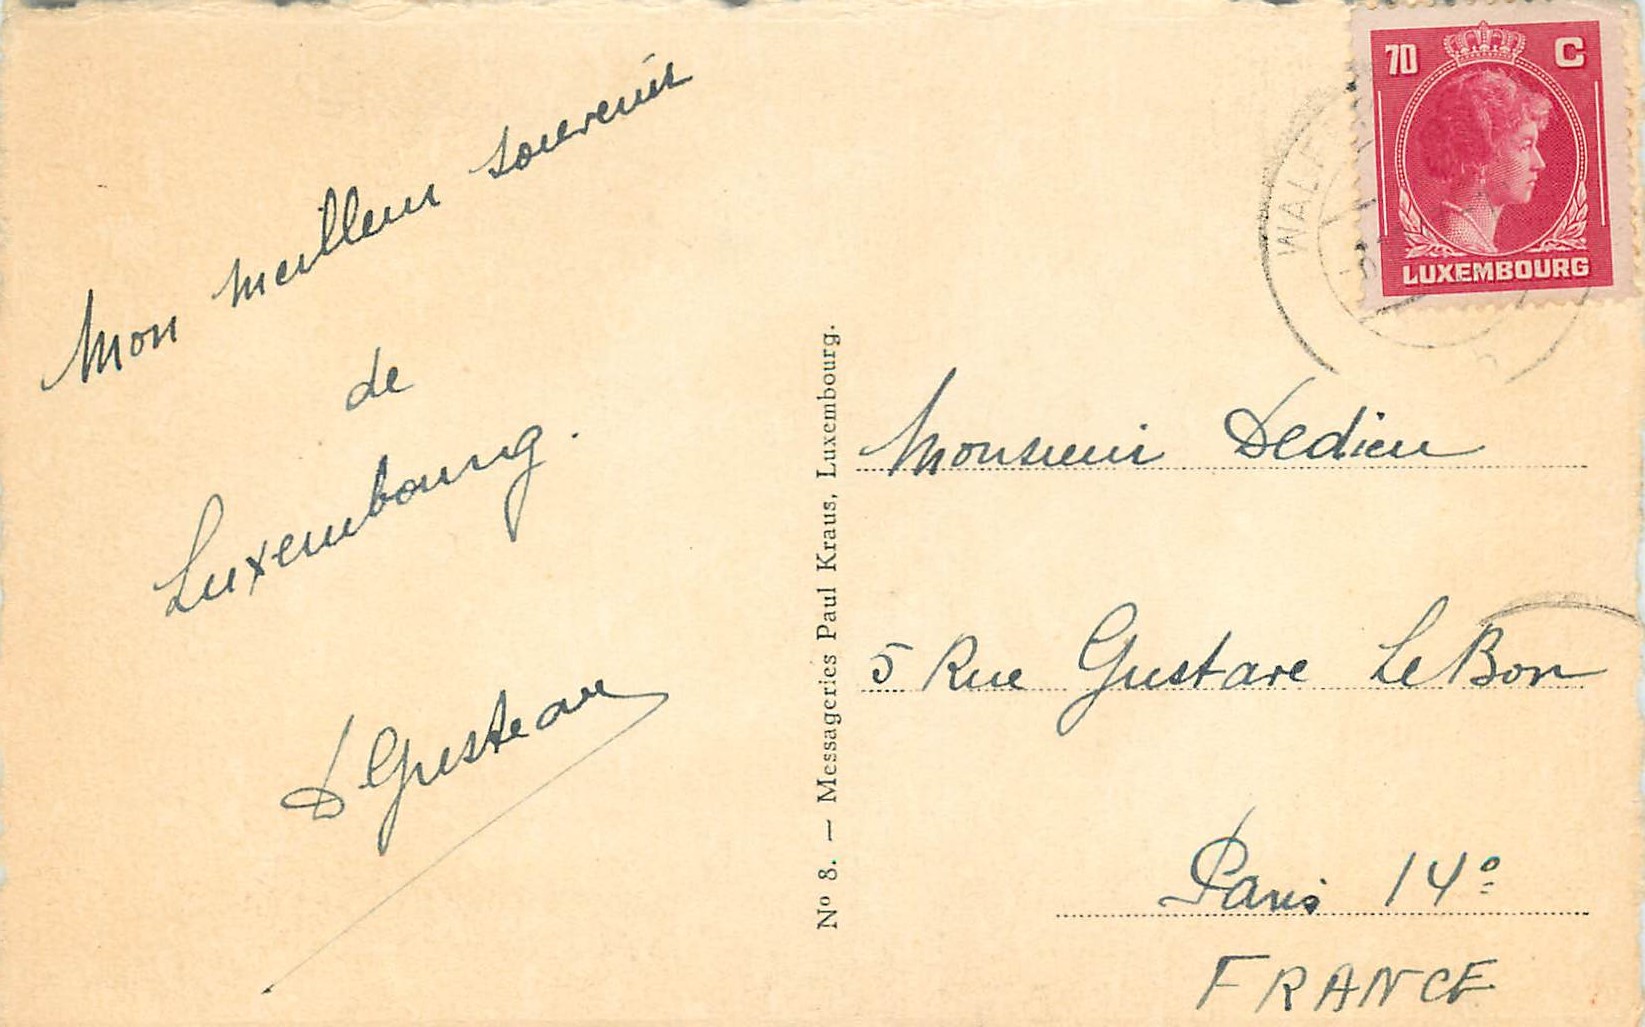 Mon meilleur souvenir
de
Luxembourg.
N° 8. — Messageries Paul Kraus, Luxembourg.
70 C
LUXEMBOURG
WALF
Monsieur Dedieu
5 Rue Gustave Le Bon
Paris 14°
FRANCE